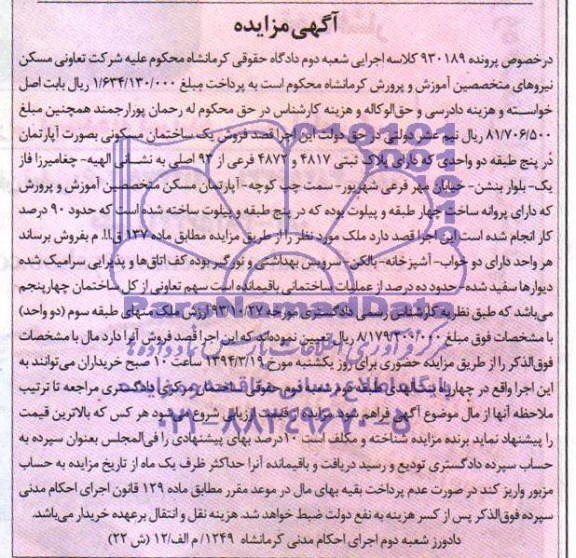 آگهی مزایده
درخصوص پرونده ۹۳۰۱۸۹ کلاسه اجرایی شعبه دوم دادگاه حقوقی کرمانشاه محکوم علیه شرکت تعاونی مسکن
نیروهای متخصصین آموزش و پرورش کرمانشاه محکوم است به پرداخت مبلغ ۱/۶۳۴/۱۳۰/۰۰۰ ریال بابت اصل
خواسته و هزینه دادرسی و حق‌الوکاله و هزینه کارشناس در حق محکوم له رحمان پورارجمند همچنین مبلغ
۸۱/۷۰۶/۵۰۰ ریال نیم عشر دولتی در حق دولت این اجرا قصد فروش یک ساختمان مسکونی بصورت آپارتمان
در پنج طبقه دو واحدی که دارای پلاک ثبتی ۴۸۱۷ و ۴۸۷۲ فرعی از ۹۳ اصلی به نشانی الهیه- چغامیرزا فاز
یک- بلوار بنشن- خیابان مهر فرعی شهریور- سمت چپ کوچه- آپارتمان مسکن متخصصین آموزش و پرورش
که دارای پروانه ساخت چهار طبقه و پیلوت بوده که در پنج طبقه و پیلوت ساخته شده است که حدود ۹۰ درصد
کار انجام شده است این اجرا قصد دارد ملک مورد نظر را از طریق مزایده مطابق ماده ۱۳۷ ق.ا.ا. م بفروش برساند
هر واحد دارای دو خواب- آشپزخانه- بالکن- سرویس بهداشتی و نورگیر بوده کف اتاق‌ها و پذیرایی سرامیک شده
دیوارها سفید شده- حدود ده درصد از عملیات ساختمانی باقیمانده است سهم تعاونی از کل ساختمان چهارپنجم
می‌باشد که طبق نظریه کارشناس رسمی دادگستری مورخه ۹۳/۱۰/۲۷ ارزش ملک منهای طبقه سوم (دو واحد)
با مشخصات فوق مبلغ ۸/۱۷۹/۲۰۰/۰۰۰ ریال تعیین نموده‌اند که این اجرا قصد فروش آنرا دارد مال با مشخصات
فوق‌الذکر را از طریق مزایده حضوری برای روز یکشنبه مورخ ۱۳۹۴/۳/۱۹ ساعت ۱۰ صبح خریداران می‌توانند به
این اجرا واقع در چهارراه طبقه دو شعبه دوم حقوقی ساختمان مرکزی دادگستری مراجعه تا ترتیب
ملاحظه آنها از مال موضوع آگهی فراهم شود. مزایده از قیمت ارزیابی شروع می‌شود هر کس که بالاترین قیمت
را پیشنهاد نماید برنده مزایده شناخته و مکلف است ۱۰درصد بهای پیشنهادی را فی‌المجلس بعنوان سپرده به
حساب سپرده دادگستری تودیع و رسید دریافت و باقیمانده آنرا حداکثر ظرف یک ماه از تاریخ مزایده به حساب
مزبور واریز کند در صورت عدم پرداخت بقیه بهای مال در موعد مقرر مطابق ماده ۱۲۹ قانون اجرای احکام مدنی
سپرده فوق‌الذکر پس از کسر هزینه به نفع دولت ضبط خواهد شد. هزینه نقل و انتقال برعهده خریدار می‌باشد.
دادورز شعبه دوم اجرای احکام مدنی کرمانشاه ۱۲۴۹/ م الف/۱۲ (ش ۲۲)
ParsNamadData
پایگاه اطلاع رسانی مناقصه و مزایده
۰۲۱-۸۸۳۴۹۶۷۰-۵